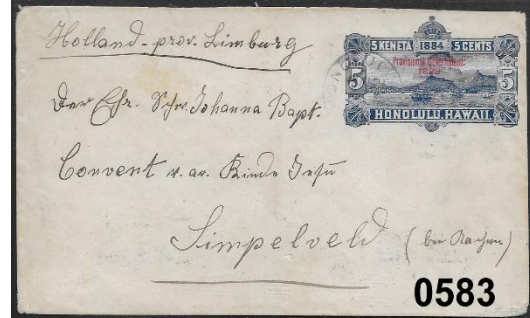 Holland - prov. Limburg
5 KENETA 1884 5 CENTS
Provisional Government
1893
5 5
HONOLULU, HAWAII.
Der Ehr. Schw. Johanna Bapt.
Convent v. ar. Kinde Jesu
Simpelveld (bei Aachen)
0583